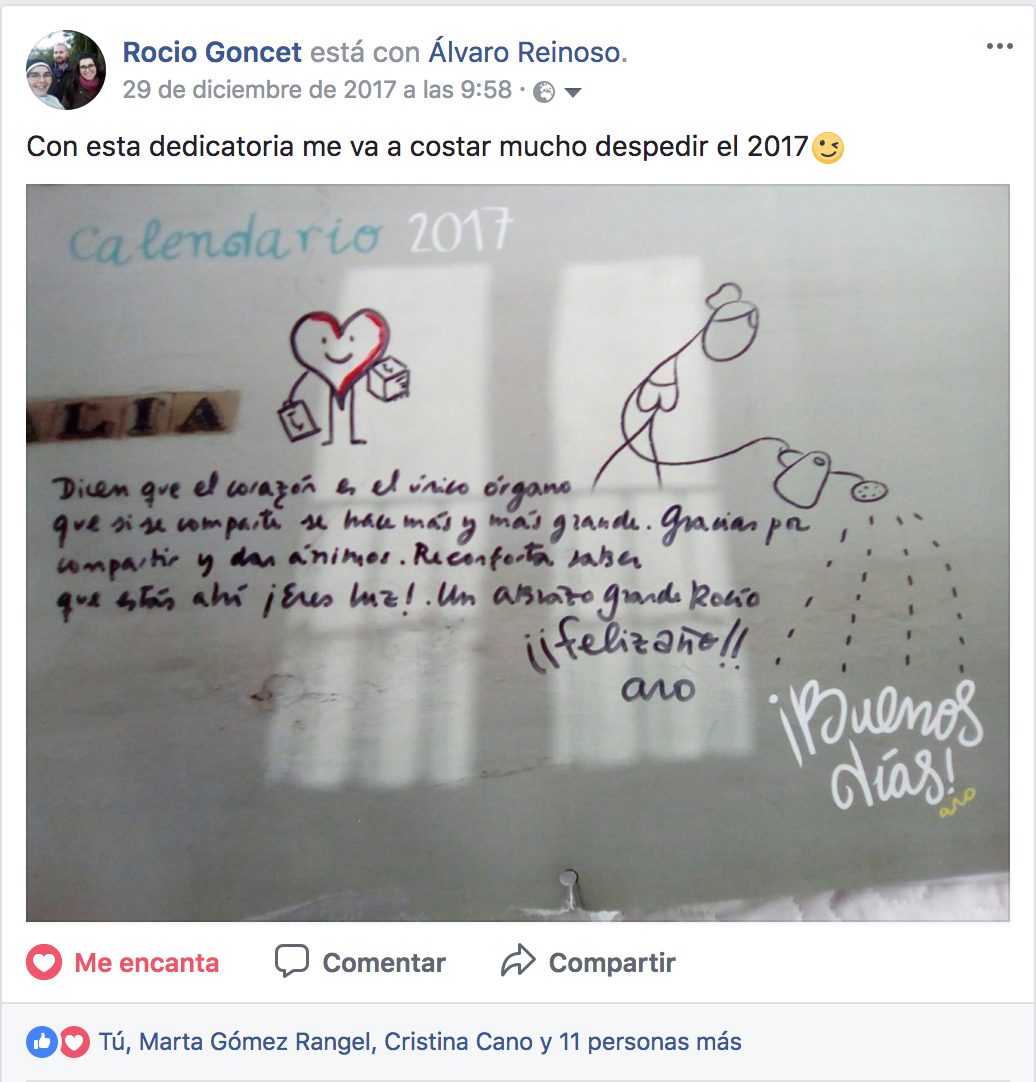 Rocio Goncet está con Álvaro Reinoso.
29 de diciembre de 2017 a las 9:58 ·
Con esta dedicatoria me va a costar mucho despedir el 2017😉
Calendario 2017
LIA
Dicen que el corazón es el único órgano
que si se comparte se hace más y más grande. Gracias por
compartir y dar ánimos. Reconforta saber
que estás ahí ¡Eres luz!. Un abrazo grande Rocío
¡¡feliz año!!
aro
¡Buenos
días!
aro
Me encanta
Comentar
Compartir
Tú, Marta Gómez Rangel, Cristina Cano y 11 personas más